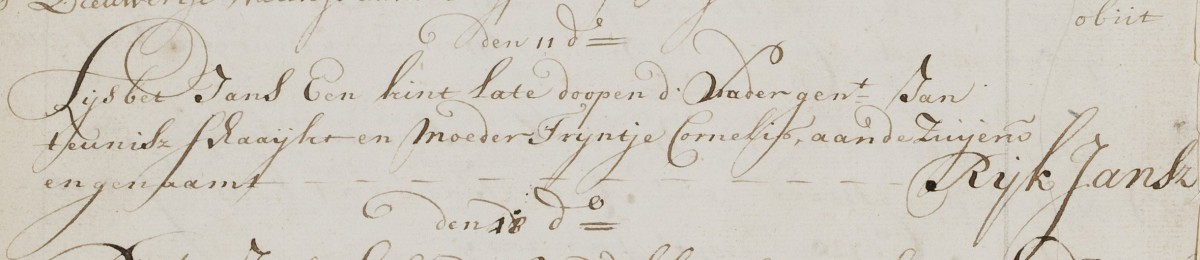 obiit
den 11 do
Lijsbet Jans Een kint late doopen d. Vader gent Jan
teunisz Kraaijkt en Moeder Tryntje Cornelis, aan de Zuijer
en genaamt - - - - - - - - - - Rijk Jansz
den 18 do